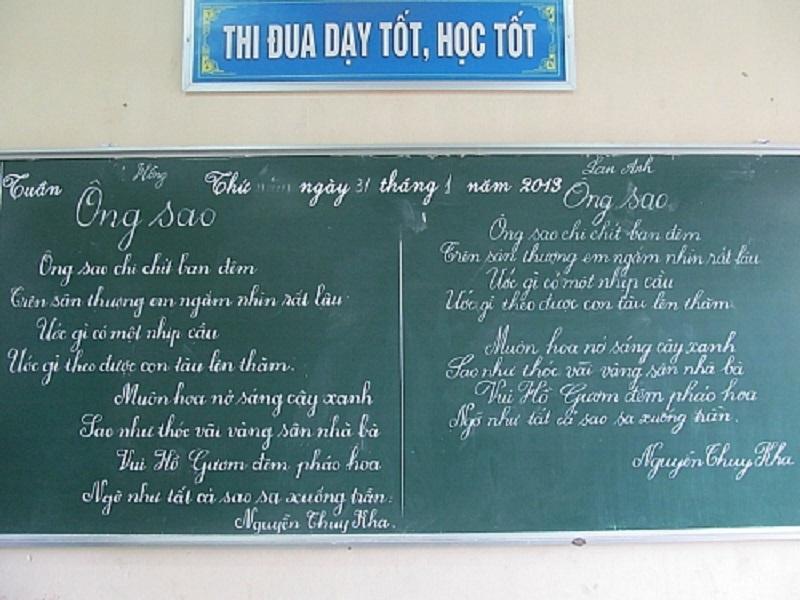 THI ĐUA DẠY TỐT, HỌC TỐT
Tuần
Hồng
Thứ năm ngày 31 tháng 1 năm 2013
Ông sao
Ông sao chi chít ban đêm
Trên sân thượng em ngắm nhìn rất lâu
Ước gì có một nhịp cầu
Ước gì theo được con tàu lên thăm.
Muôn hoa nở sáng cây xanh
Sao như thóc vãi vàng sân nhà bà
Vui Hồ Gươm đêm pháo hoa
Ngỡ như tất cả sao sa xuống trần.
Nguyễn Thụy Kha.
Lan Anh
Ông sao
Ông sao chi chít ban đêm
Trên sân thượng em ngắm nhìn rất lâu
Ước gì có một nhịp cầu
Ước gì theo được con tàu lên thăm
Muôn hoa nở sáng cây xanh
Sao như thóc vãi vàng sân nhà bà
Vui Hồ Gươm đêm pháo hoa
Ngỡ như tất cả sao sa xuống trần.
Nguyễn Thụy Kha